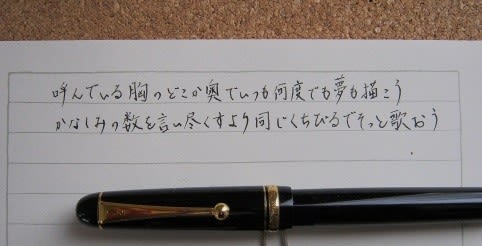 呼んでいる胸のどこか奥でいつも何度でも夢も描こう
かなしみの数を言い尽くすより同じくちびるでそっと歌おう